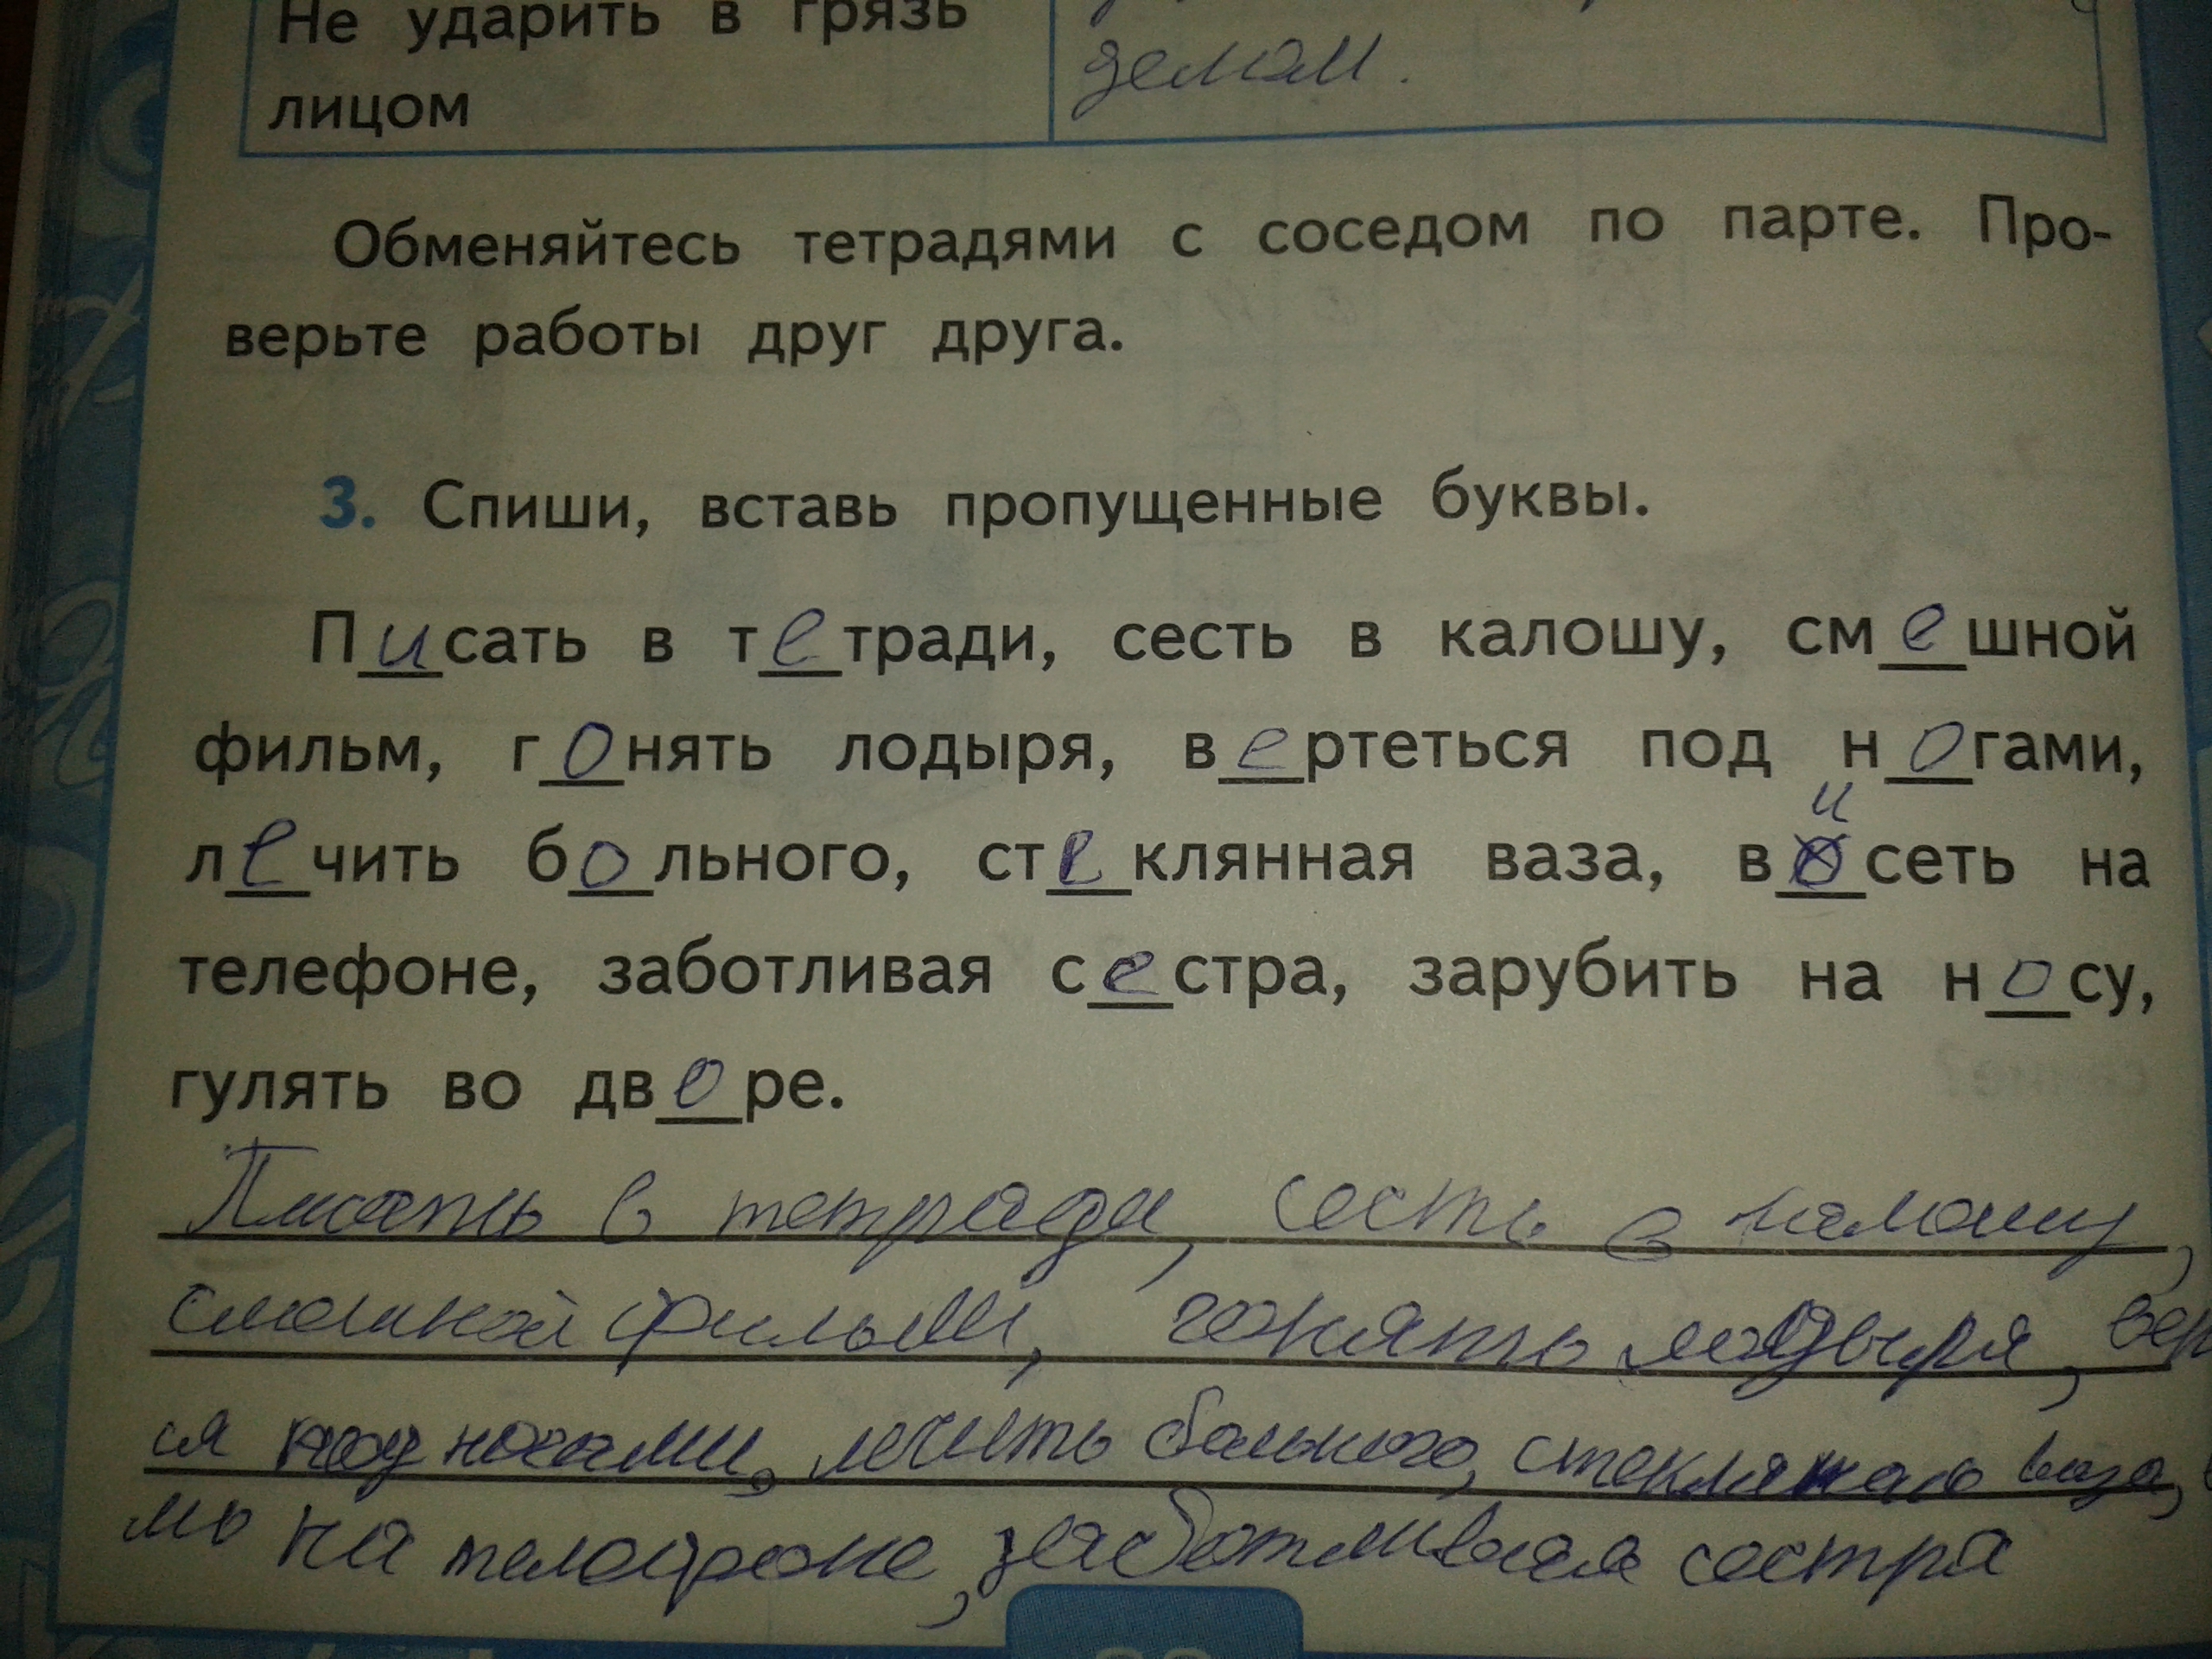 Не ударить в грязь
лицом
делом.
Обменяйтесь тетрадями с соседом по парте. Про-
верьте работы друг друга.
3. Спиши, вставь пропущенные буквы.
Писать в тетради, сесть в калошу, смешной
фильм, гонять лодыря, вертеться под ногами,
и
лечить больного, стеклянная ваза, восеть на
телефоне, заботливая сестра, зарубить на носу,
гулять во дворе.
Писать в тетради, сесть в калошу,
смешной фильм, гонять лодыря, вер
ся под ногами, лечить больного, ваза,
ть на телефоне, заботливая сестра